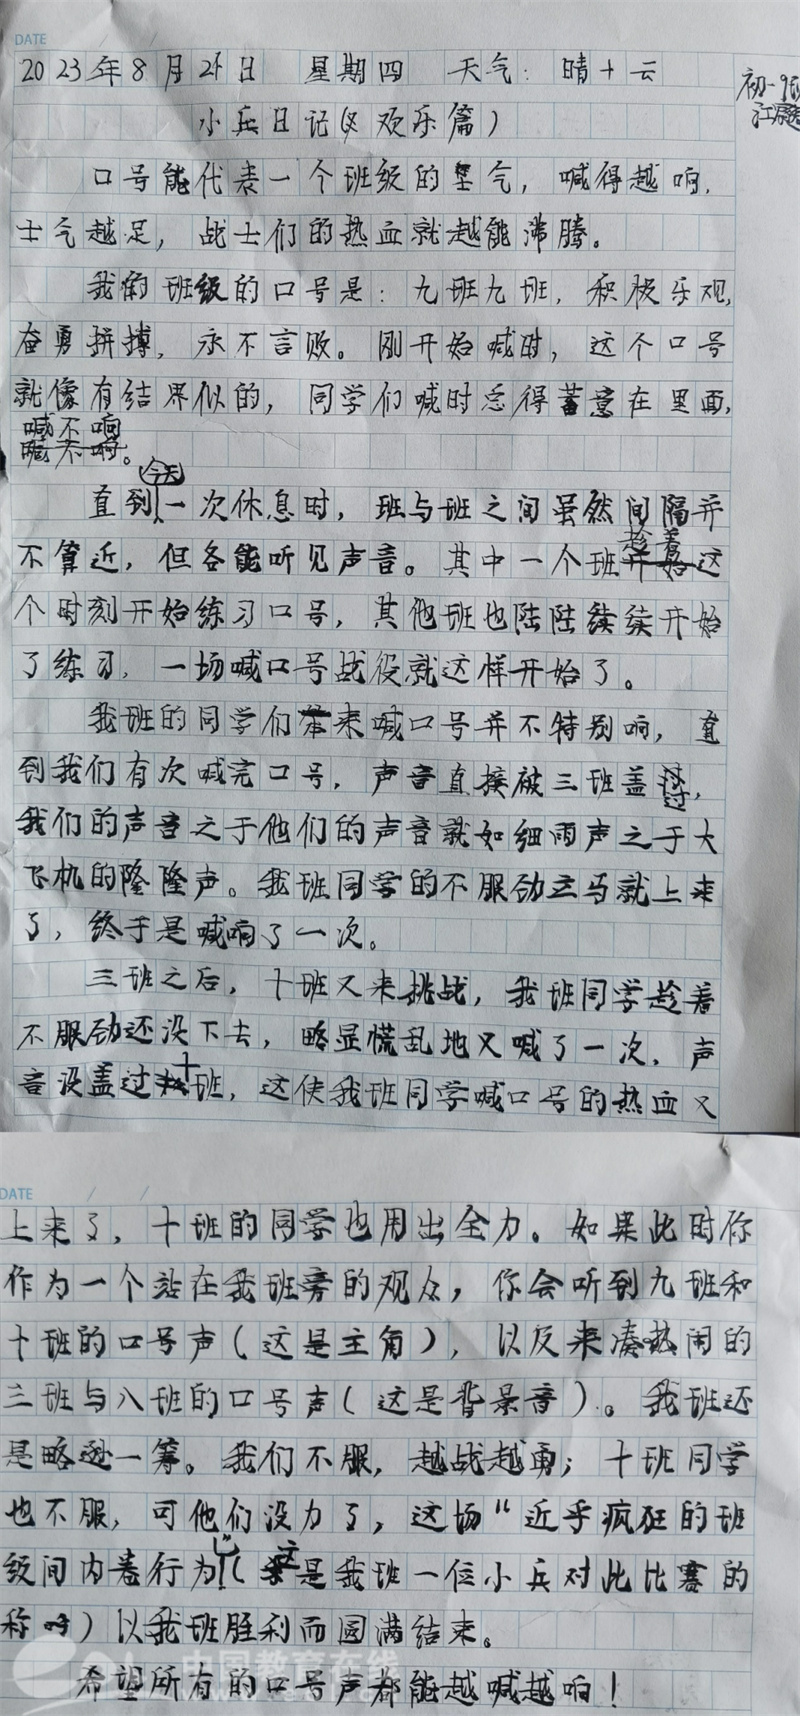 DATE
2023年8月24日 星期四 天气：晴+云
初一9班
小兵日记(欢乐篇)
口号能代表一个班级的士气，喊得越响，
士气越足，战士们的热血就越能沸腾。
我的班级的口号是：九班九班，积极乐观，
奋勇拼搏，永不言败。刚开始喊时，这个口号
就像有结界似的，同学们喊时总得蓄意在里面，
喊不响
。
今天
直到一次休息时，班与班之间虽然间隔并
趁着
不算近，但各能听见声音。其中一个班开始这
个时刻开始练习口号，其他班也陆陆续续开始
了练习，一场喊口号战役就这样开始了。
我班的同学们本来喊口号并不特别响，直
到我们有次喊完口号，声音直接被三班盖过，
我们的声音之于他们的声音就如细雨声之于大
飞机的隆隆声。我班同学的不服劲立马就上来
了，终于是喊响了一次。
三班之后，十班又来挑战，我班同学趁着
不服劲还没下去，略显慌乱地又喊了一次，声
音没盖过十班，这使我班同学喊口号的热血又
DATE / /
上来了，十班的同学也用出全力。如果此时你
作为一个站在我班旁的观众，你会听到九班和
十班的口号声(这是主角)，以及来凑热闹的
三班与八班的口号声(这是背景音)。我班还
是略逊一筹。我们不服，越战越勇；十班同学
也不服，可他们没力了，这场“近乎疯狂的班
级间内卷行为”(这是我班一位小兵对此比赛的
称呼)以我班胜利而圆满结束。
希望所有的口号声都能越喊越响！
中国教育在线